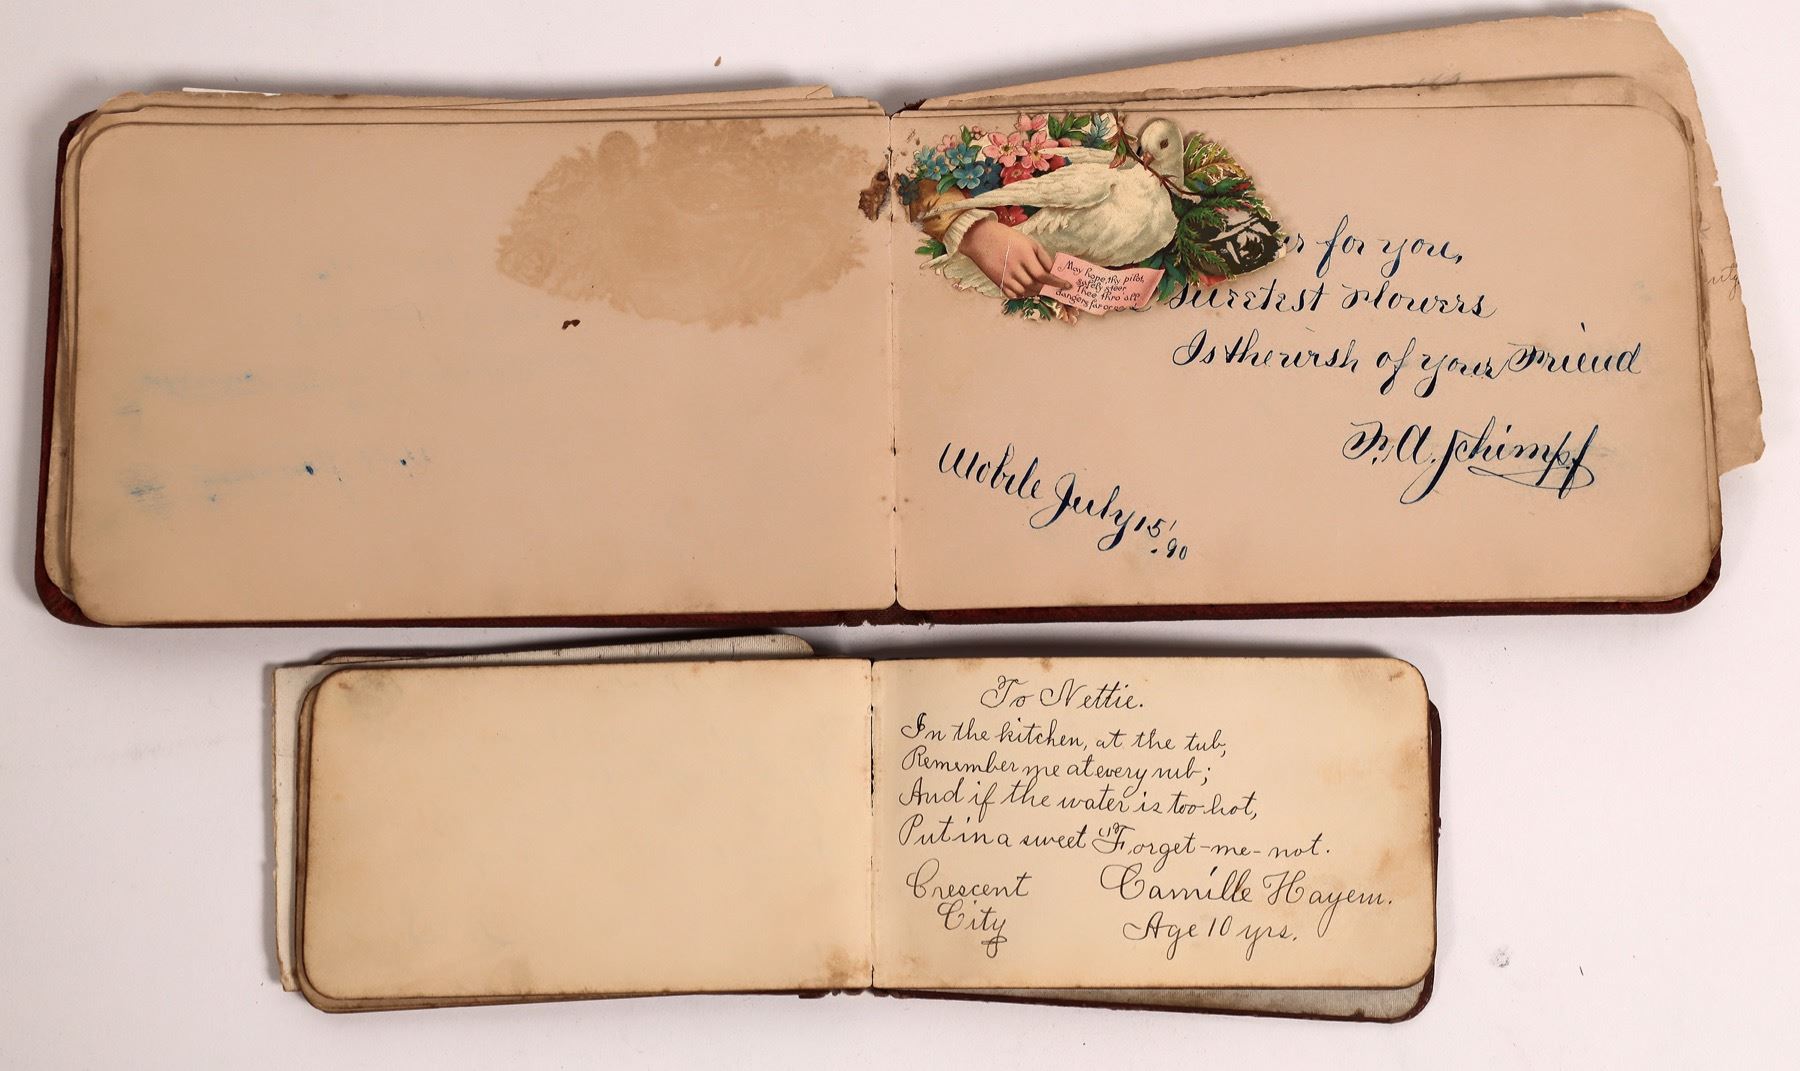 May hope, thy pilot,
safely steer
Thee thro' all
dangers far or
for you,
sweetest Flowers
Is the wish of your Friend
F. A. Schimpf
Mobile July 15'
-90
To Nettie.
In the kitchen, at the tub,
Remember me at every rub;
And if the water is too hot,
Put in a sweet "Forget-me-not.
Crescent City
Camille Hayem.
Age 10 yrs.